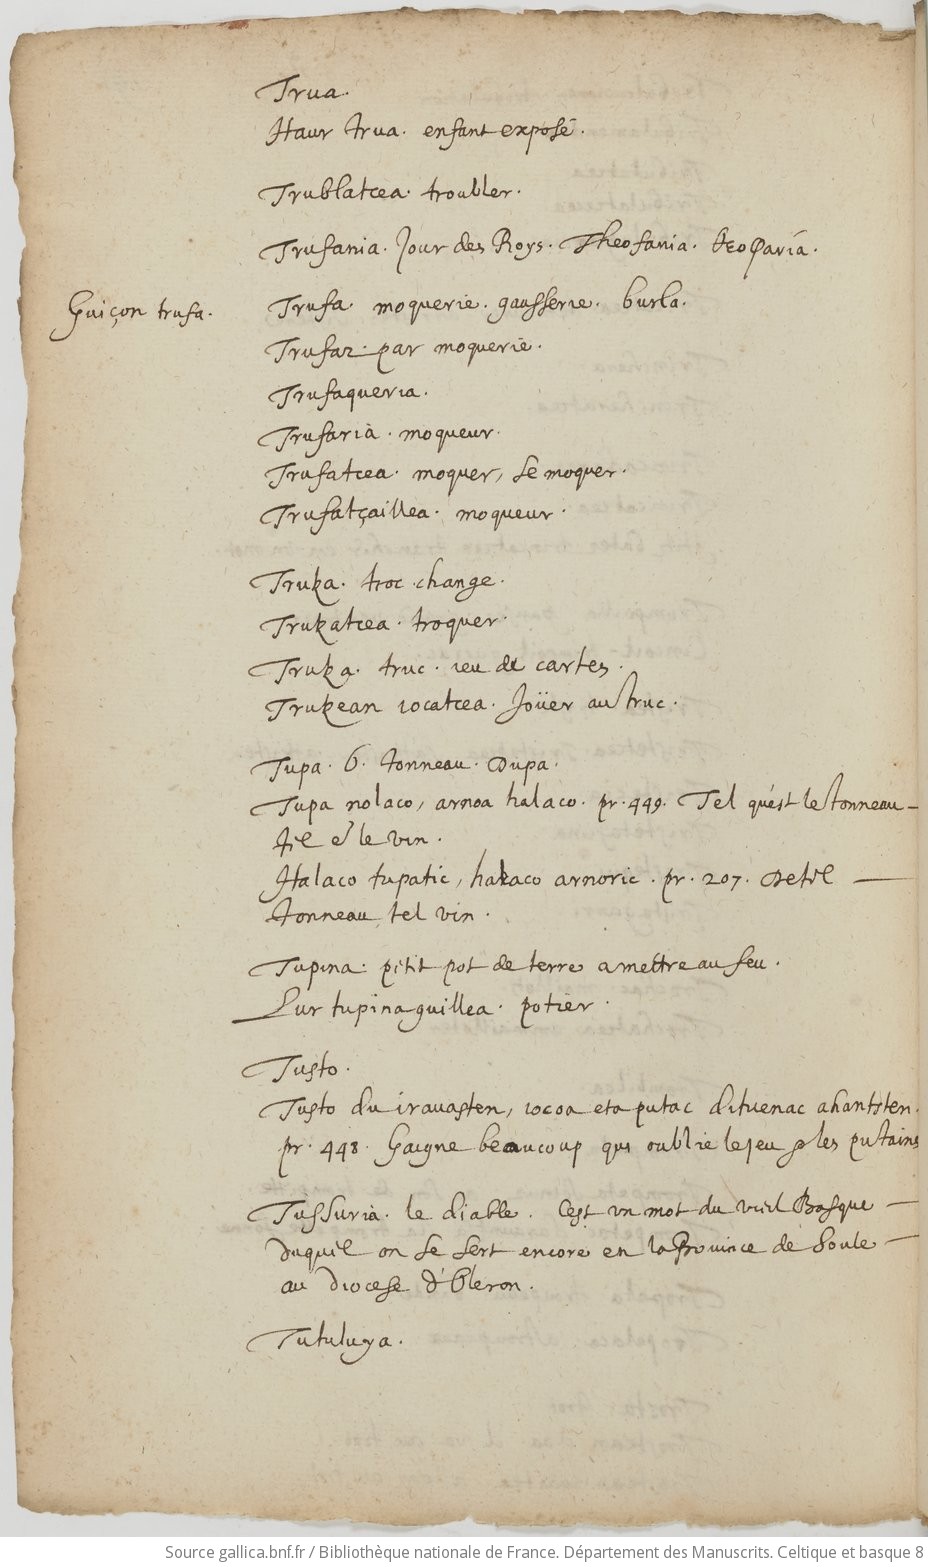 Trua.
Haur trua. enfant exposé.
Trublatcea. troubler.
Trufania. Jour des Roys. Theofania. θεοφανία.
Guiçon trufa.
Trufa. moquerie. gausserie. burla.
Trufaz. par moquerie.
Trufaqueria.
Trufarià. moqueur.
Trufatcea. moquer, se moquer.
Trufatçaillea. moqueur.
Truka. troc. change.
Trukatcea. troquer.
Truka. truc. ieu de cartes.
Trukean iocatcea. Joüer au truc.
Tupa. 6. tonneau. Dupa.
Tupa nolaco, arnoa halaco. pr. 449. Tel qu'est le tonneau
til est le vin.
Halaco tupatic, halaco arnoric. pr. 207. De tel
tonneau tel vin.
Tupina. petit pot de terre a mettre au feu.
Lur tupinaguillea. potier.
Tusto.
Tusto du iravasten, iocoa eta putac dituenac ahantsten.
pr. 448. Gaigne beaucoup qui oublie le jeu & les putains
Tussurià. le diable. C'est un mot du vieil Basque
duquel on se sert encore en la Province de Soule
au diocese d'Oleron.
Tutuluya.